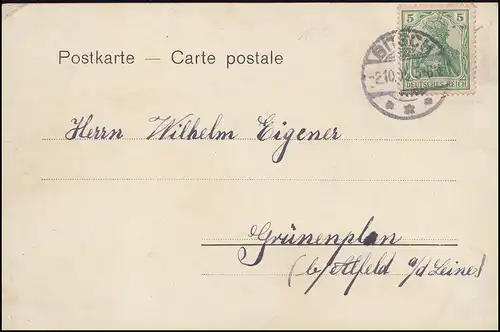 Postkarte — Carte postale
BITSCH
5 5
DEUTSCHES REICH
Herrn Wilhelm Eigener
Grünenplan
(b/Alfeld a/d Leine)